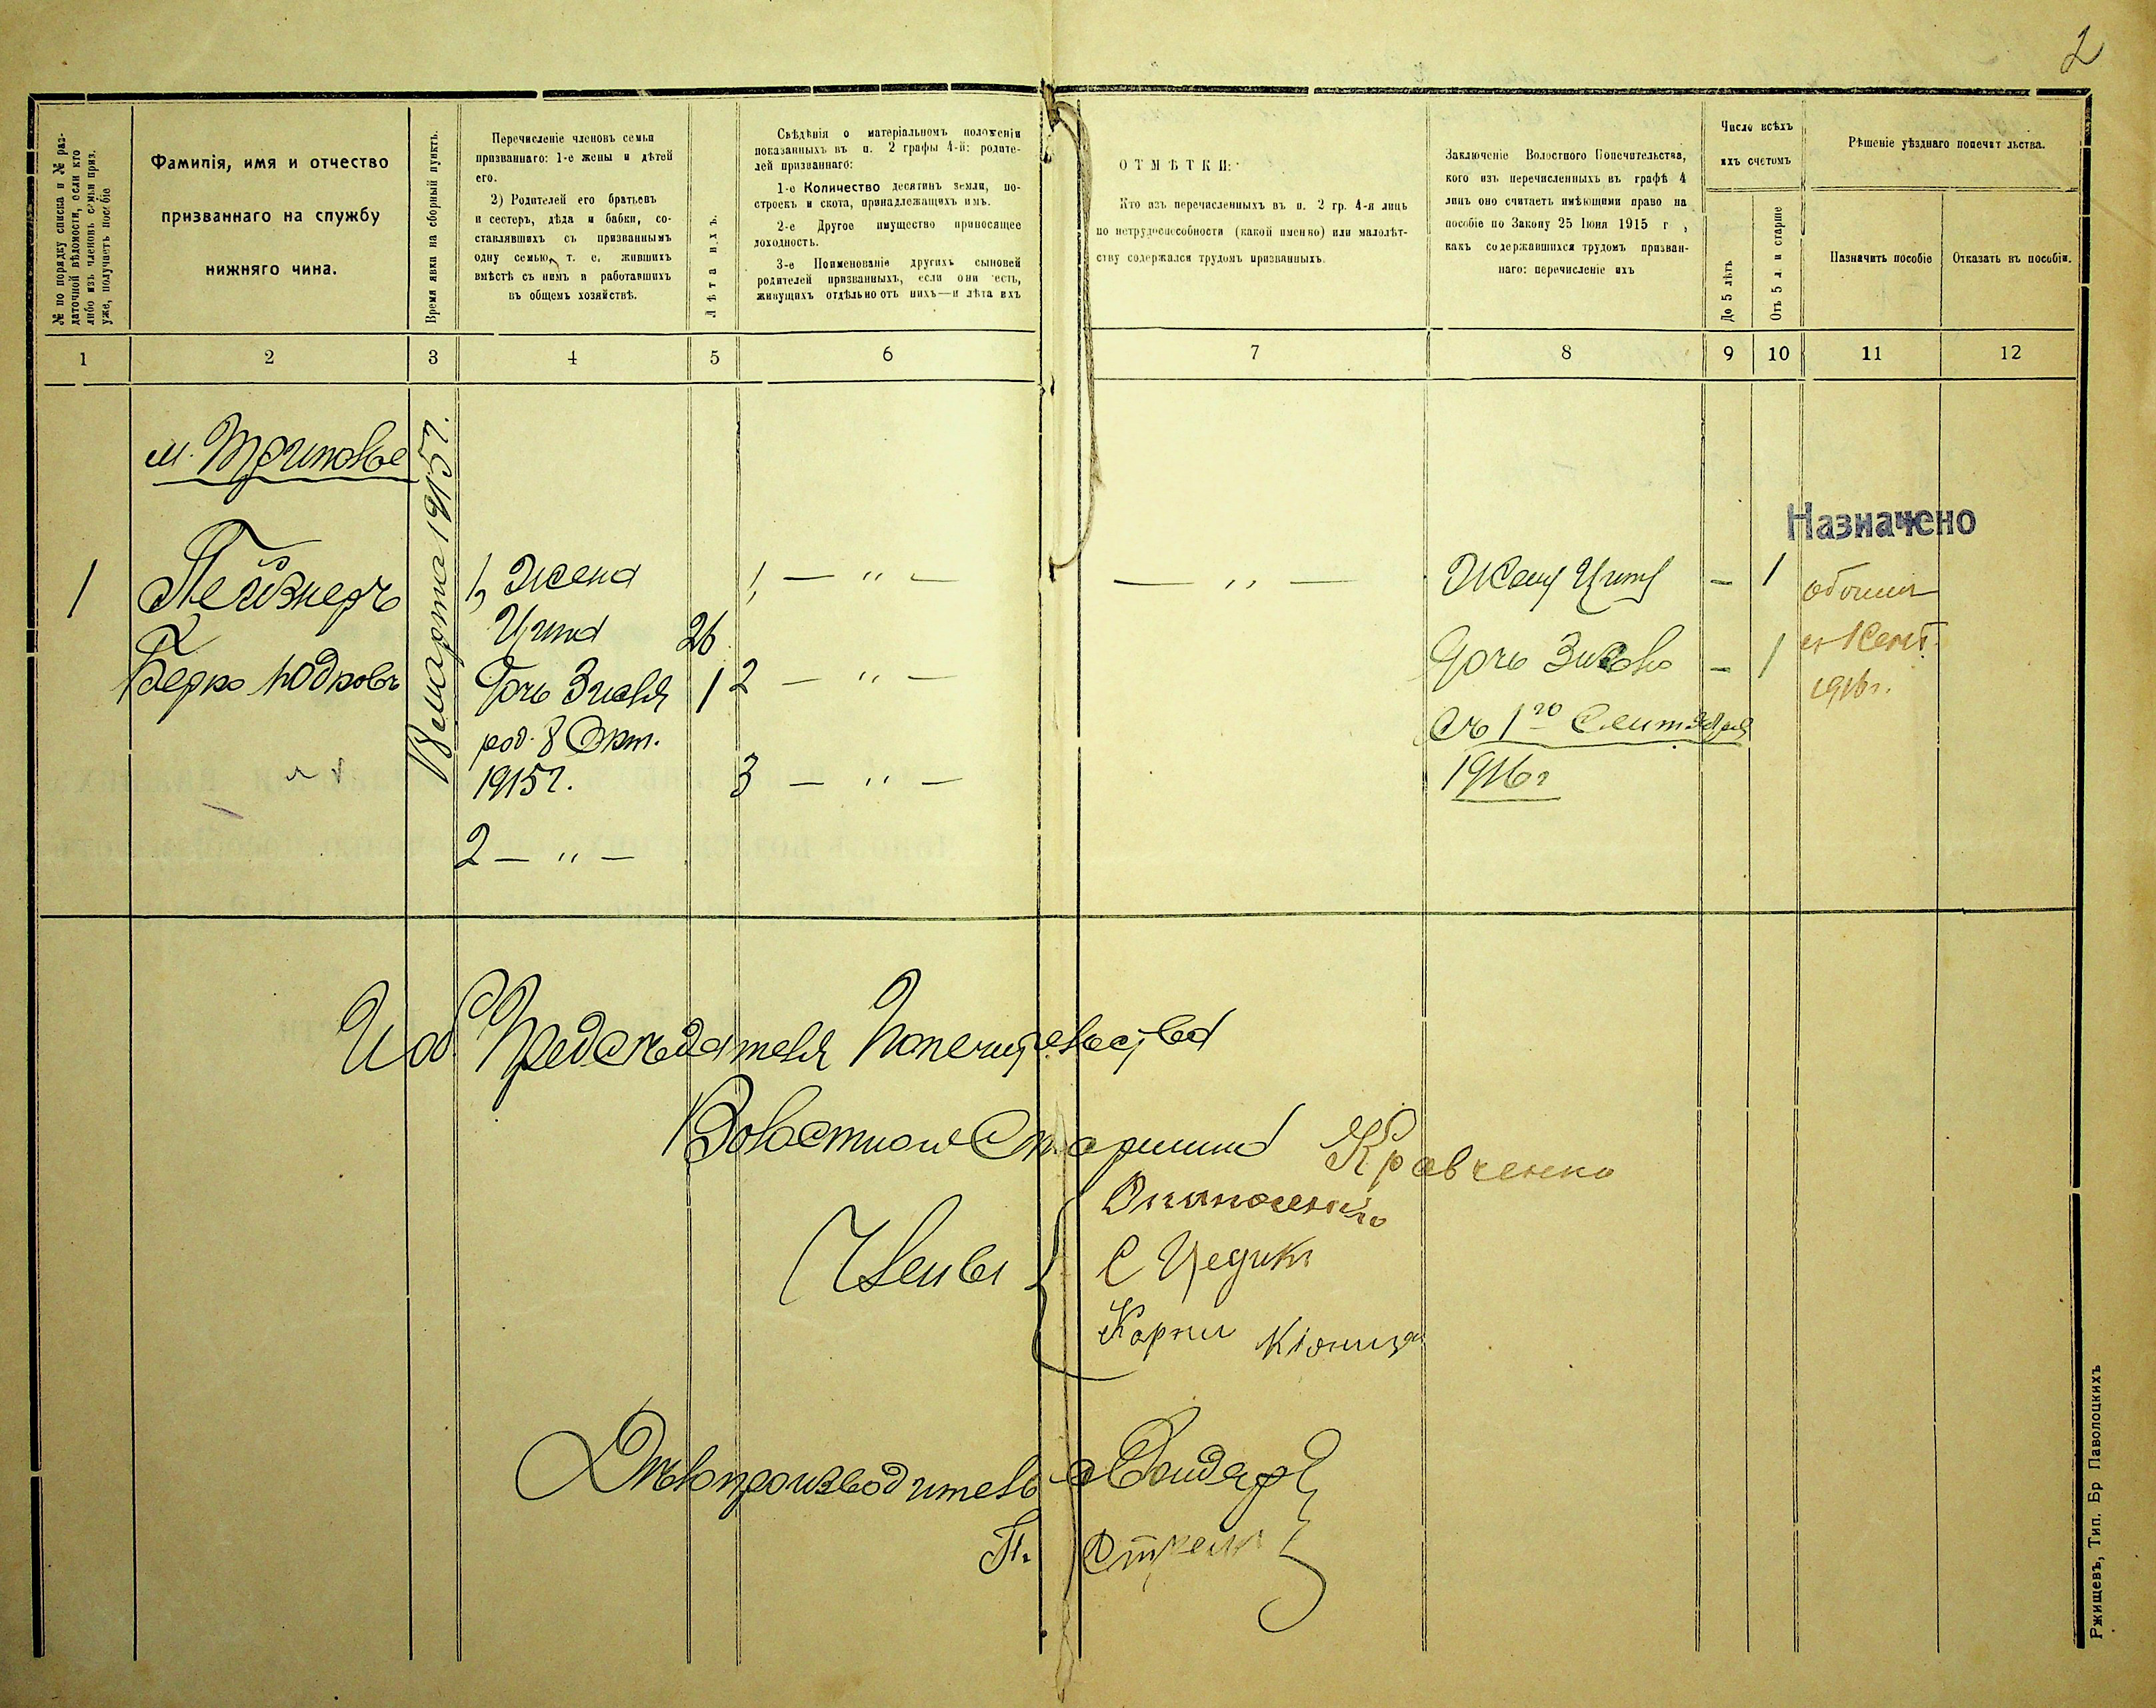 2
№ по порядку списка и № раз-
даточной вѣдомости, если кто
либо изъ членовъ семьи приз.
уже, получаетъ пособіе
Фамилія, имя и отчество
призваннаго на службу
нижняго чина.
Время явки на сборный пунктъ.
Перечисленіе членовъ семьи
призваннаго: 1-е жены и дѣтей
его.
2) Родителей его братьевъ
и сестеръ, дѣда и бабки, со-
ставлявшихъ съ призваннымъ
одну семью, т. е. жившихъ
вмѣстѣ съ нимъ и работавшихъ
въ общемъ хозяйствѣ.
Лѣта ихъ.
Свѣдѣнія о матеріальномъ положеніи
показанныхъ въ п. 2 графы 4-й: родите-
лей призваннаго:
1-е Количество десятинъ земли, по-
строекъ и скота, принадлежащихъ имъ.
2-е Другое имущество приносящее
доходность.
3-е Поименованіе другихъ сыновей
родителей призванныхъ, если они есть,
живущихъ отдѣльно отъ нихъ—и лѣта ихъ
ОТМѢТКИ:
Кто изъ перечисленныхъ въ п. 2 гр. 4-я лицъ
по нетрудоспособности (какой именно) или малолѣт-
ству содержался трудомъ призванныхъ.
Заключеніе Волостного Попечительства,
кого изъ перечисленныхъ въ графѣ 4
лицъ оно считаетъ имѣющими право на
пособіе по Закону 25 Іюня 1915 г,
какъ содержавшихся трудомъ призван-
наго: перечисленіе ихъ
Число всѣхъ
ихъ счетомъ
До 5 лѣтъ
Отъ 5 л. и старше
Рѣшеніе уѣзднаго попечит льства.
Назначить пособіе
Отказать въ пособіи.
1 2 3 4 5 6 7 8 9 10 11 12
м. Триполье
марта 1915 г.
Назначено
1 Пейзнеръ 1, Жена 1, — „ — — „ — Жену Ципу — 1 обоимъ
Ципа 26
Берко Іодковъ Дочь Зисля 1 2 — „ — Дочь — 1 съ 1 Сент.
1916 г.
род. 8 Окт. Съ 1го Сентября
1915 г. 3 — „ — 1916 г
2 — „ —
И об Предсѣдателя Попечительства
Волостной Старшина Кравченко
Члены
С Цедикъ
Карпи
Дѣлопроизводитель Бондарь
П.
Ржищевъ, Тип. Бр Паволоцкихъ